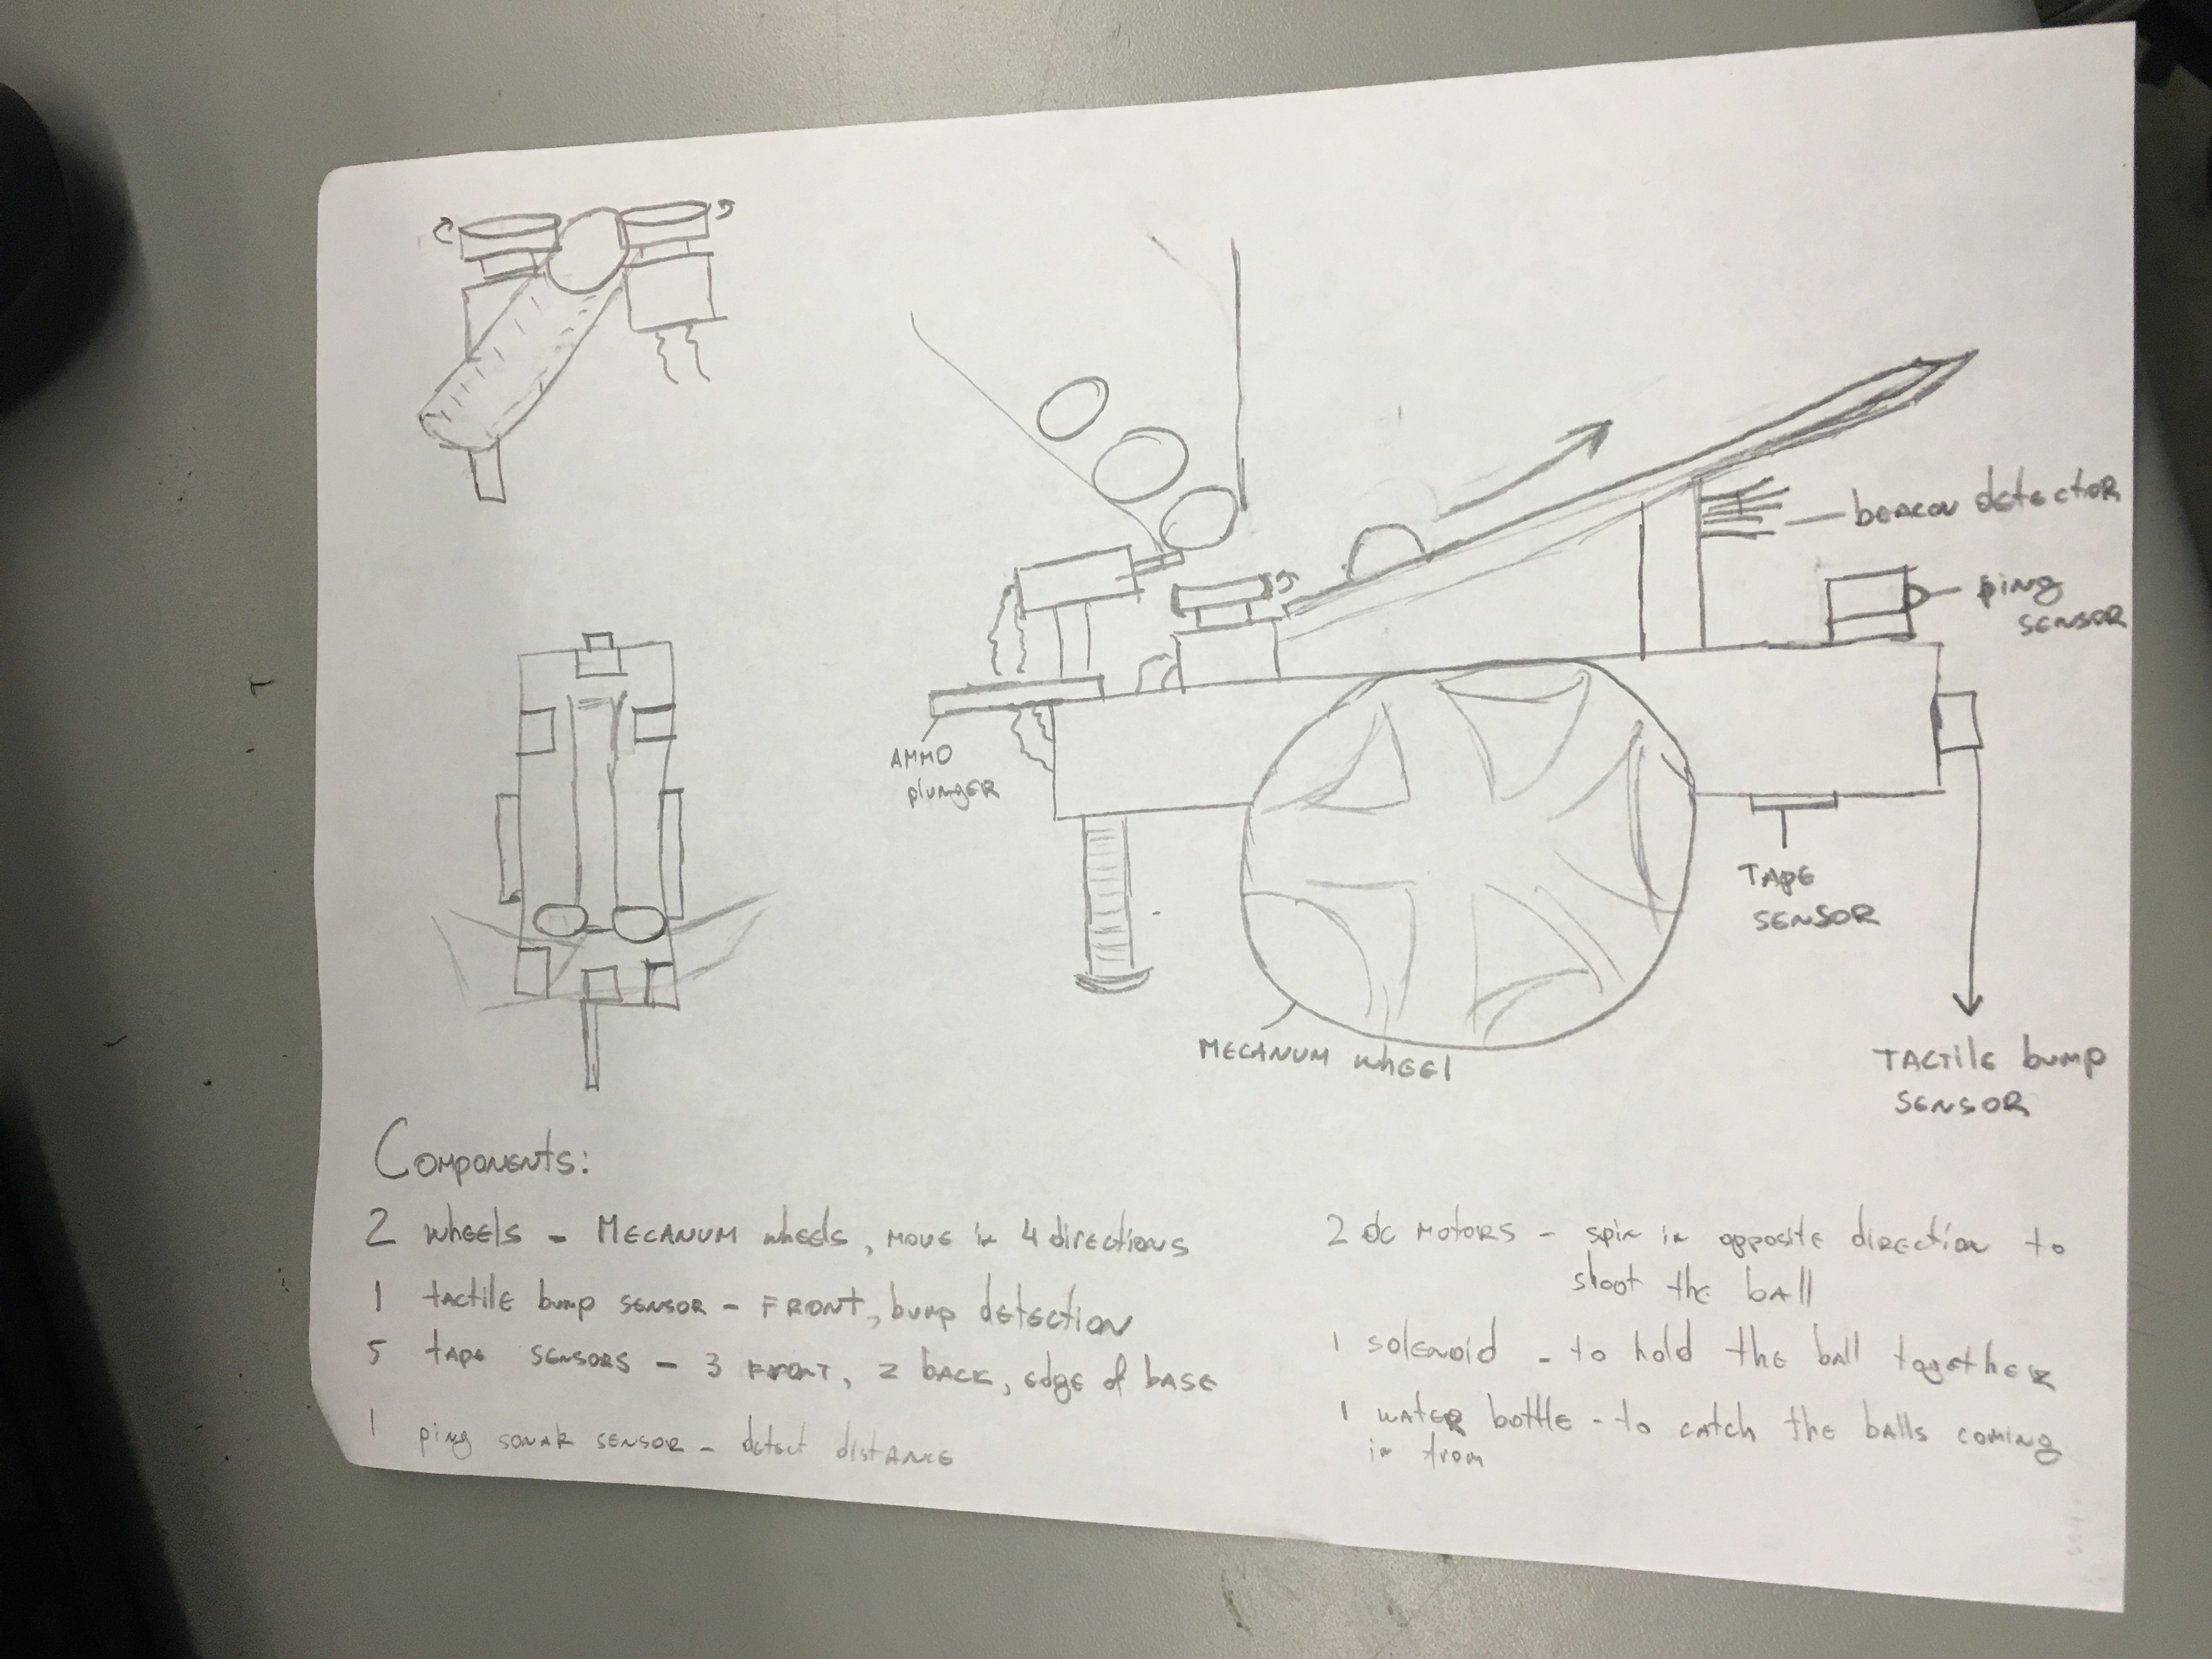 beacon detector
ping
sensor
AMMO
plunger
TAPE
SENSOR
MECANUM wheel
TACTILE bump
SENSOR
Components:
2 wheels - MECANUM wheels, move in 4 directions
1 tactile bump sensor - FRONT, bump detection
5 tape sensors - 3 FRONT, 2 BACK, edge of base
1 ping sonar sensor - detect distance
2 dc motors - spin in opposite direction to
shoot the ball
1 solenoid - to hold the ball together
1 water bottle - to catch the balls coming
in from